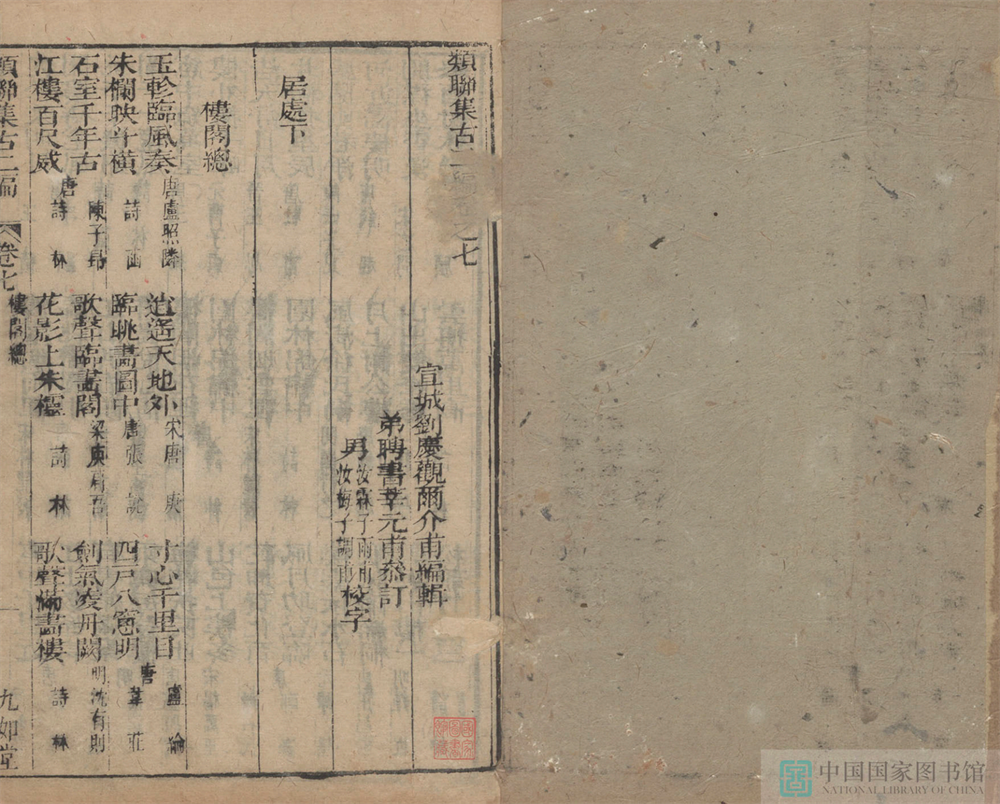 類聯集古二編卷之七
宣城劉慶觀爾介甫編輯
弟聘書莘元甫叅訂
男汝霖子雨甫
汝梅子調甫校字
居處下
樓閣總
玉軫臨風奏唐盧照隣 逍遥天地外宋唐庚 寸心千里目唐盧綸
朱欄映斗橫詩函 臨眺畫圖中唐張説 四戶八窻明唐韋莊
石室千年古唐陳子昻 歌聲臨畫閣梁庾肩吾 劍氣凌丹闕明沈有則
江樓百尺威詩林 花影上朱欞詩林 歌聲滿畫樓詩林
類聯集古二編 卷七 樓閣總 一 九如堂
中国国家图书馆
NATIONAL LIBRARY OF CHINA